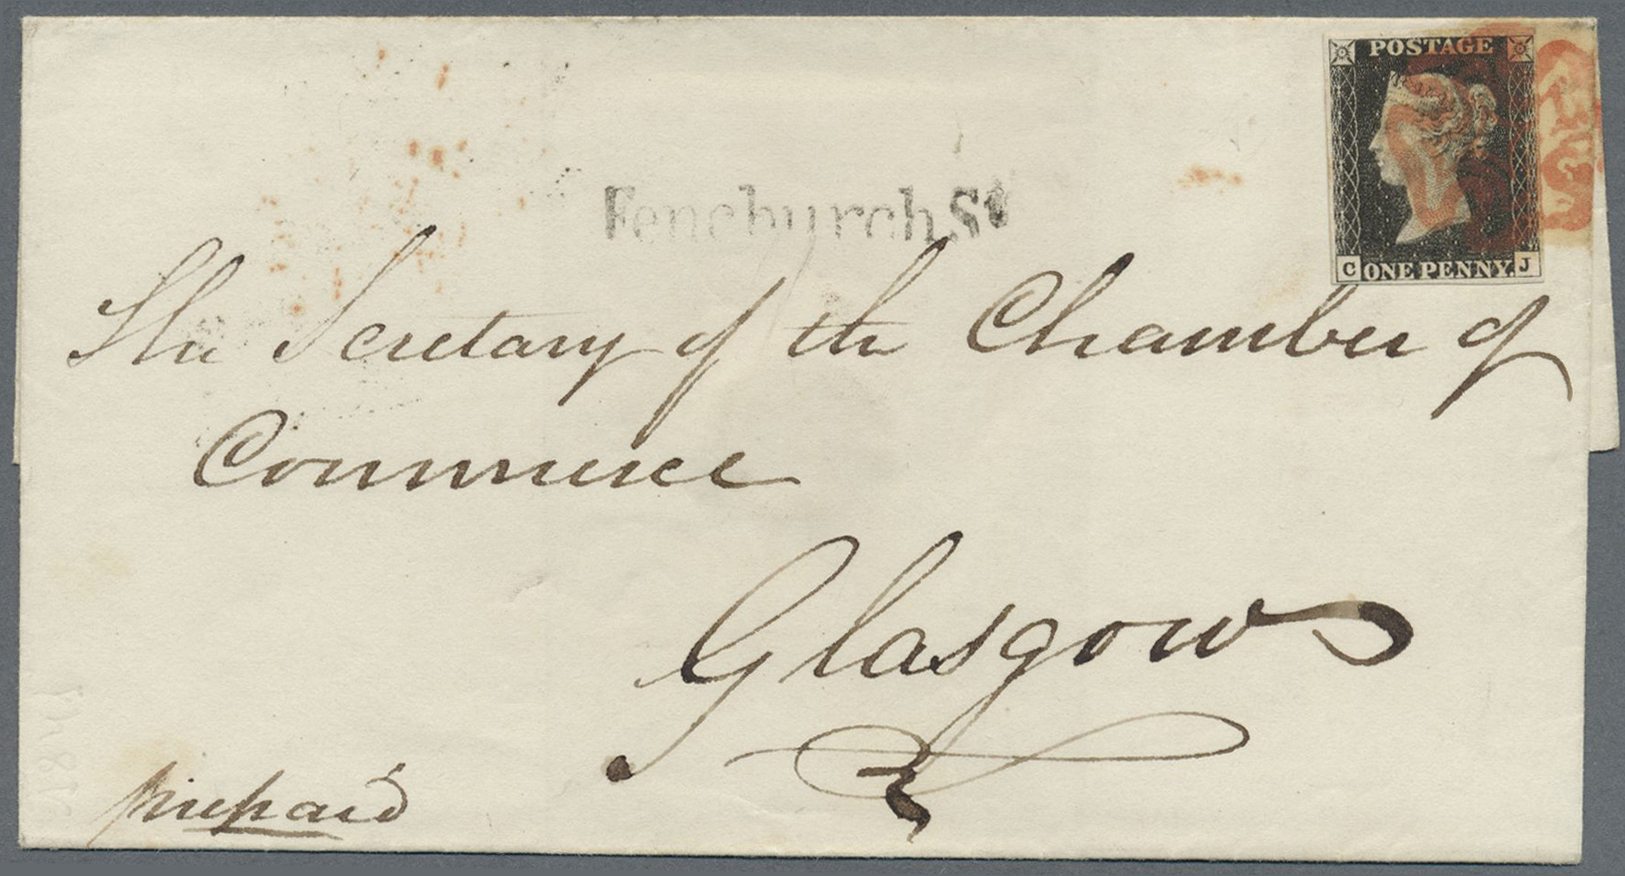 POSTAGE
C ONE PENNY. J
Fenchurch St
The Secretary of the Chamber of
Commerce
Glasgow
prepaid